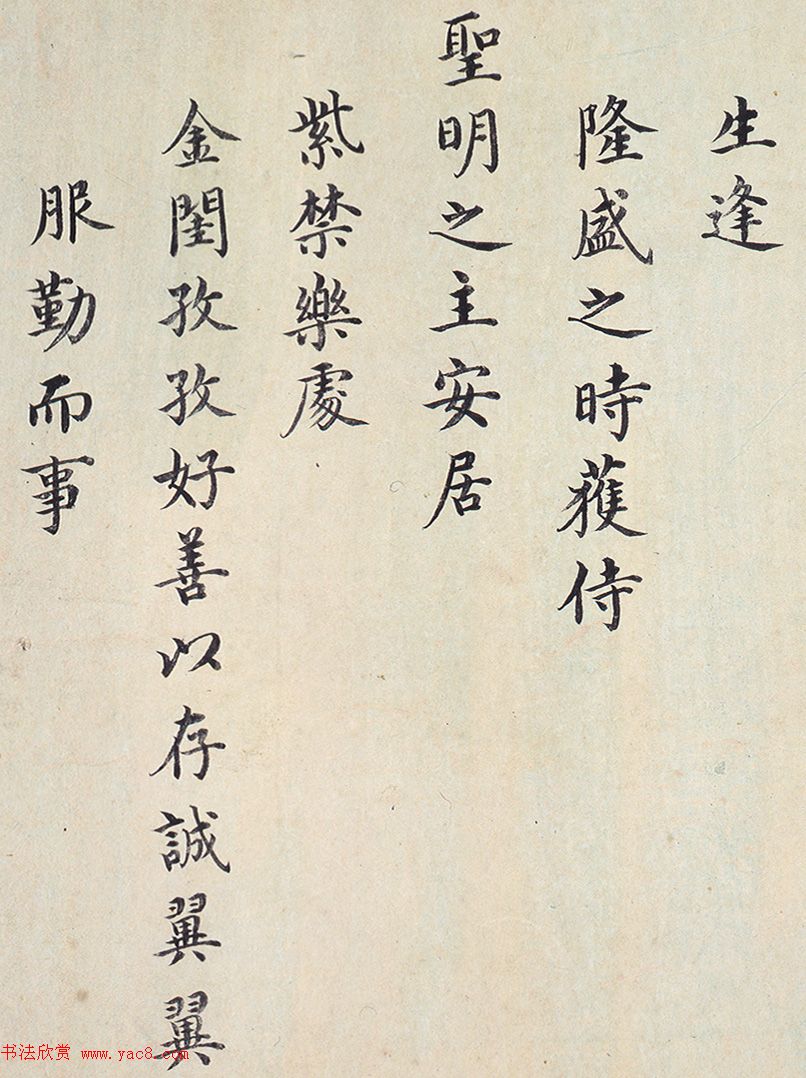 生逢
隆盛之時獲侍
聖明之主安居
紫禁樂處
金閨孜孜好善以存誠翼翼
服勤而事
书法欣赏 www.yac8.com